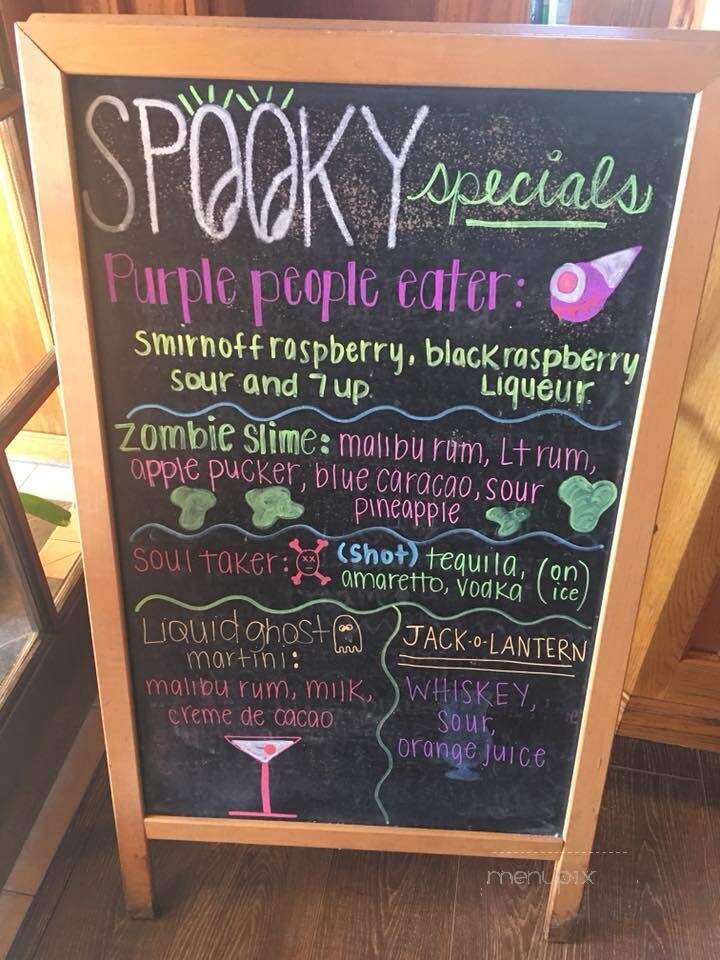 SPOOKY specials
Purple people eater:
Smirnoff raspberry, black raspberry
sour and 7up. Liqueur.
Zombie Slime: malibu rum, Lt rum,
apple pucker, blue caracao, sour
pineapple
soul taker: (shot) tequila, (on
amaretto, vodka ice)
Liquid ghost
martini:
malibu rum, milk,
creme de cacao
JACK-O-LANTERN
WHISKEY,
sour,
orange juice
menupix